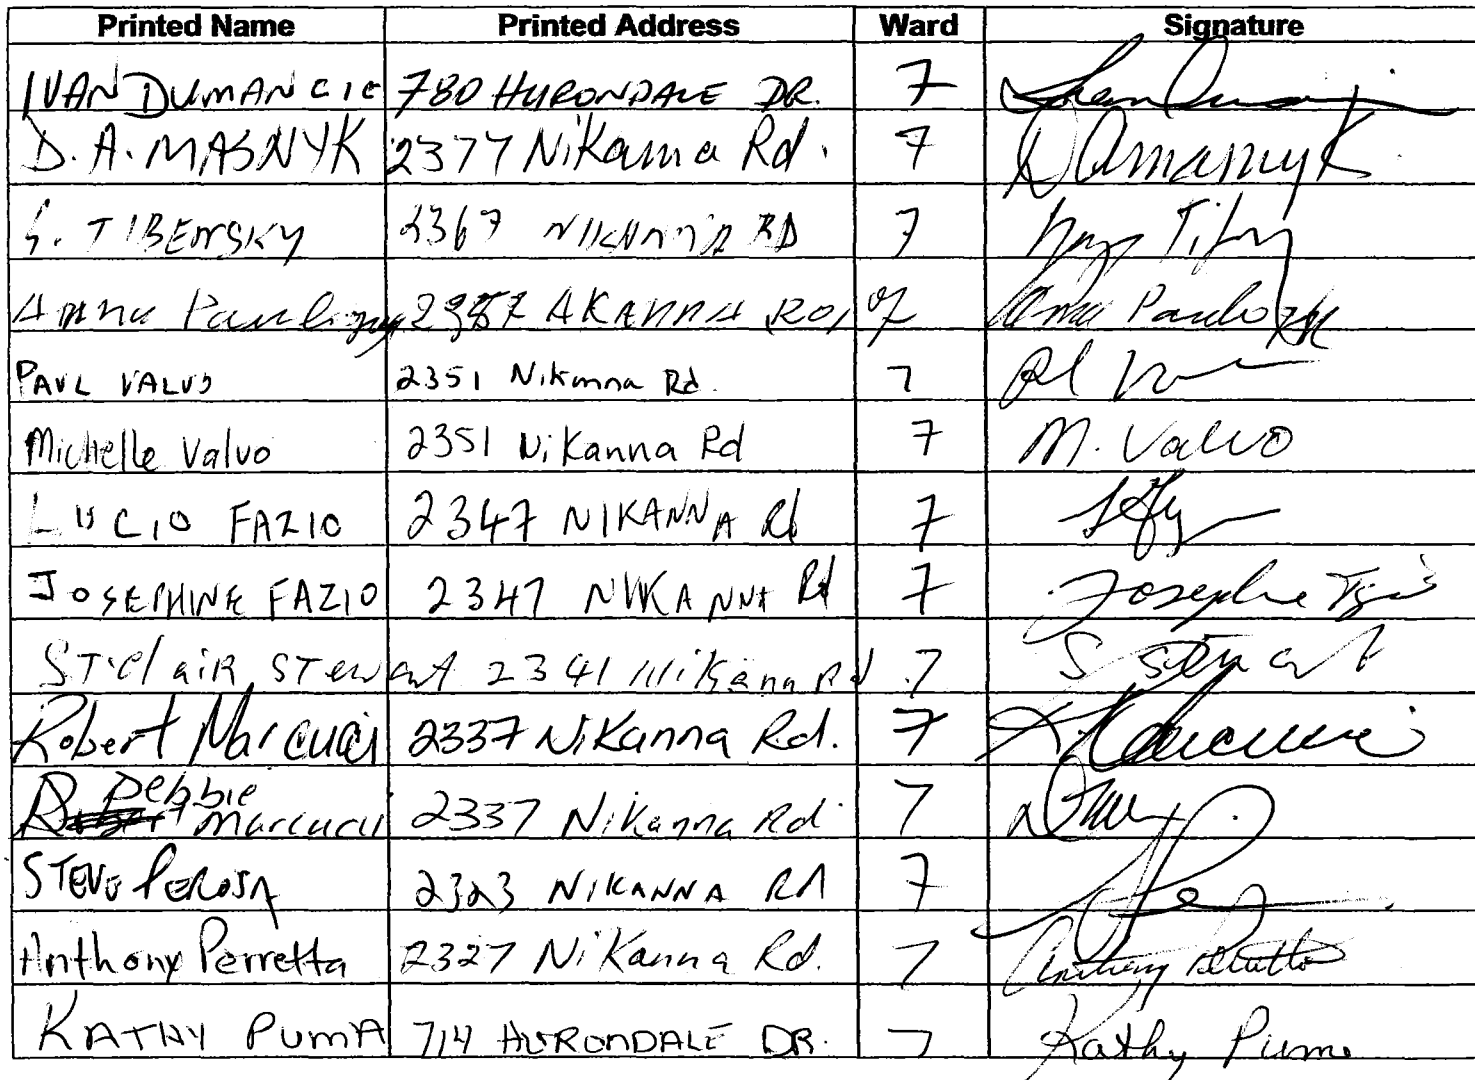 Printed Name Printed Address Ward Signature
IVAN DUMANCIC 780 HURONDALE DR. 7
D. A. MASNYK 2377 Nikanna Rd. 7 DAMasnyk
TIBENSKY 2367 NIKANNA RD 7
Anna 7 Anna
PAUL VALVO 2351 Nikanna Rd. 7
Michelle Valvo 2351 Nikanna Rd 7 M. Valvo
LUCIO FAZIO 2347 NIKANNA Rd 7
JOSEPHINE FAZIO 2347 NIKANNA Rd 7 Josephine Fazio
ST.Clair Stewart 2341 Nikanna Rd 7 S Stewart
Robert Marcucci 2337 Nikanna Rd. 7 R Marcucci
Debbie
Marcucci 2337 Nikanna Rd 7
STEVE PEROSA 2323 NIKANNA Rd 7
Anthony Perretta 2327 Nikanna Rd. 7 Anthony Perretta
KATHY PUMA 714 HURONDALE DR. 7 Kathy Puma